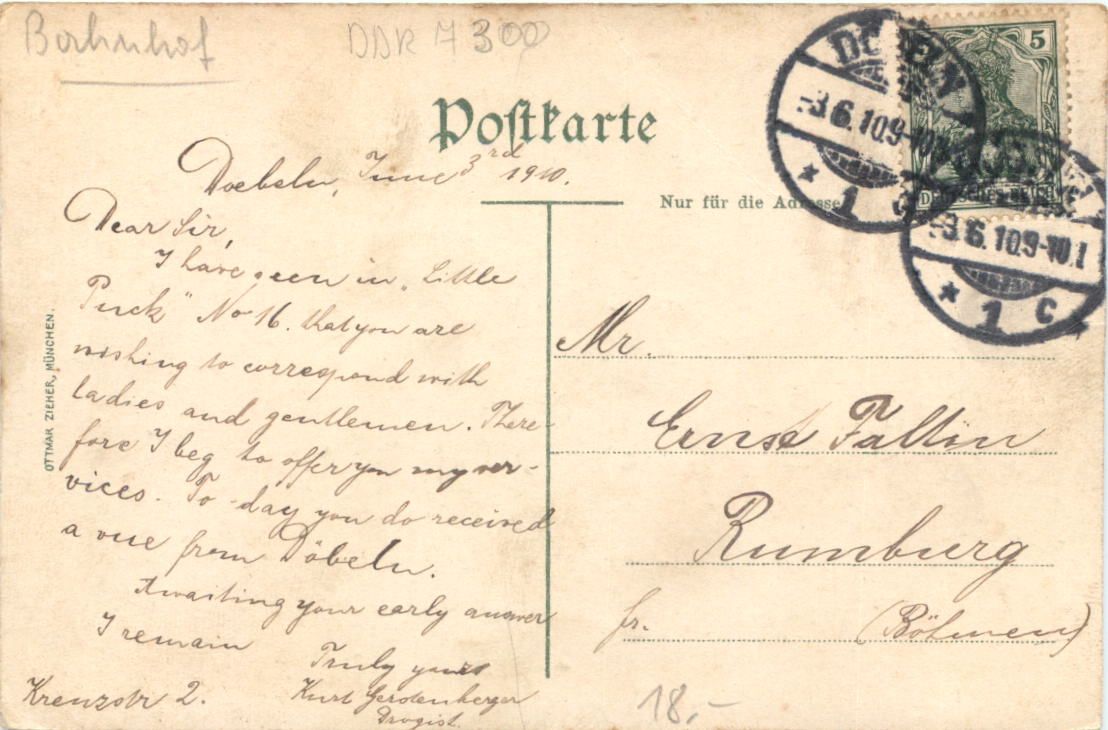 Bahnhof
DDR 7300
Postkarte
Nur für die Adresse
5
DEUTSCHES REICH
DÖBELN
-3.6.10.9-10V.
* 1 c
-3.6.10.9-10.V
* 1 c *
OTTMAR ZIEHER, MÜNCHEN.
Doebeln, June 3rd 1910.
Dear Sir,
I have seen in „Little
Puck" No 16. that you are
wishing to correspond with
ladies and gentlemen. There-
fore I beg to offer you my ser-
vices. To-day you do received
a vue from Döbeln.
Awaiting your early answer
I remain
Truly yours
Kurt Gerstenberger
Drogist.
Kreuzstr 2.
Mr.
Ernst Fallin
Rumburg
fr. (Böhmen)
18,-